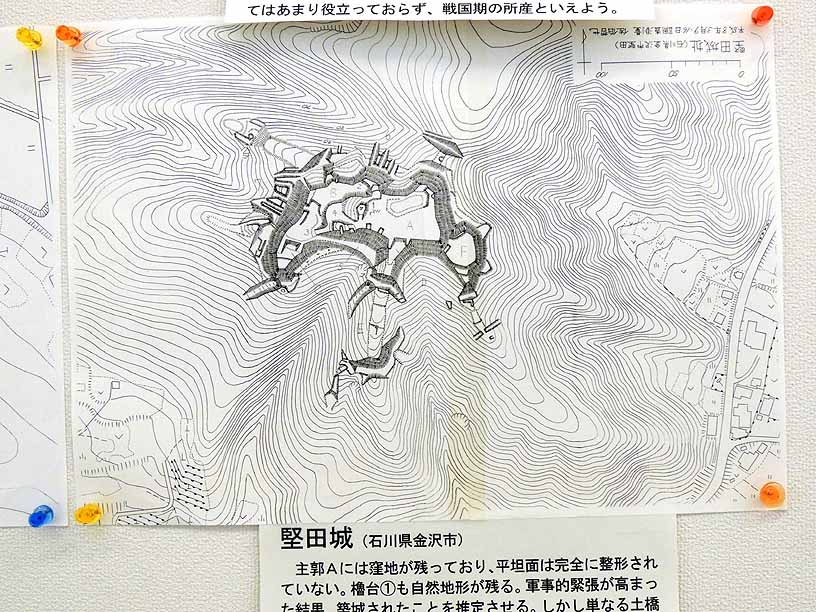 てはあまり役立っておらず、戦国期の所産といえよう。
堅田城址(石川県金沢市堅田)
100
50
0
A
堅田城(石川県金沢市)
主郭Aには窪地が残っており、平坦面は完全に整形され
ていない。櫓台①も自然地形が残る。軍事的緊張が高まっ
た結果、築城されたことを推定させる。しかし単なる土橋